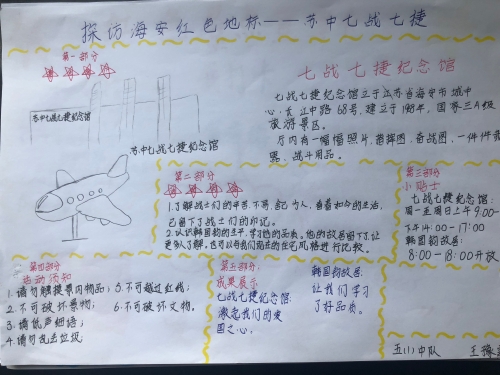 探访海安红色地标——苏中七战七捷
第一部分
苏中七战七捷纪念馆
苏中七战七捷纪念馆
七战七捷纪念馆
七战七捷纪念馆立于江苏省海安市城中
心，长江中路68号，建立于1988年，国家三A级
旅游景区。
厅内有一幅幅照片、指挥图、奋战图，一件件武
器、战斗用品。
第二部分
1.了解战士们的平苦不易，舍己为人，查看如今的生活，
已留下了战士们的印记。
2.认识韩国钧的生平，学习他的品质。他的故居留下了，让
更多人了解，也可以与我们现在的住宅风格进行比较。
第三部分
小贴士
七战七捷纪念馆：
周一至周日上午9:00—
下午14:00-17:00
韩国钧故居：
8:00-18:00开放
第四部分
活动须知
1.请勿触摸景内物品；5.不可越过红线；
2.不可破坏景物；6.不可破坏文物。
3.请低声细语；
4.请勿乱丢垃圾
第五部分
成果展示
七战七捷纪念馆：
激起我们的爱
国之心。
韩国钧故居：
让我们学习
了好品质。
五(1)中队 王